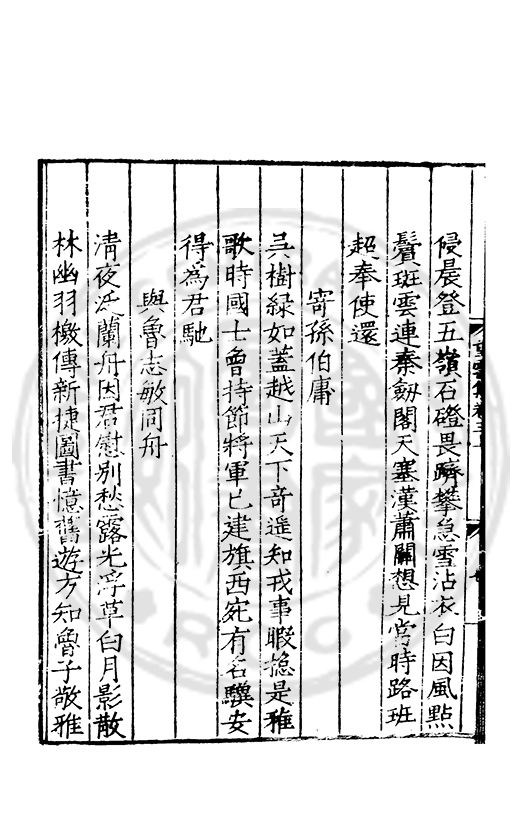 侵晨登五嶺石磴畏躋攀急雪沾衣白因風點
鬢斑雲連秦劒閣天塞漢蕭關想見當時路班
超奉使還
寄孫伯庸
吳樹綠如蓋越山天下奇遥知戎事暇揔是雅
歌時國士曾持節將軍已建旗西宛有名驥安
得為君馳
與魯志敏同舟
清夜泛蘭舟因君慰別愁露光浮草白月影散
林幽羽檄傳新捷圖書憶舊遊方知魯子敬雅
望雲集卷三